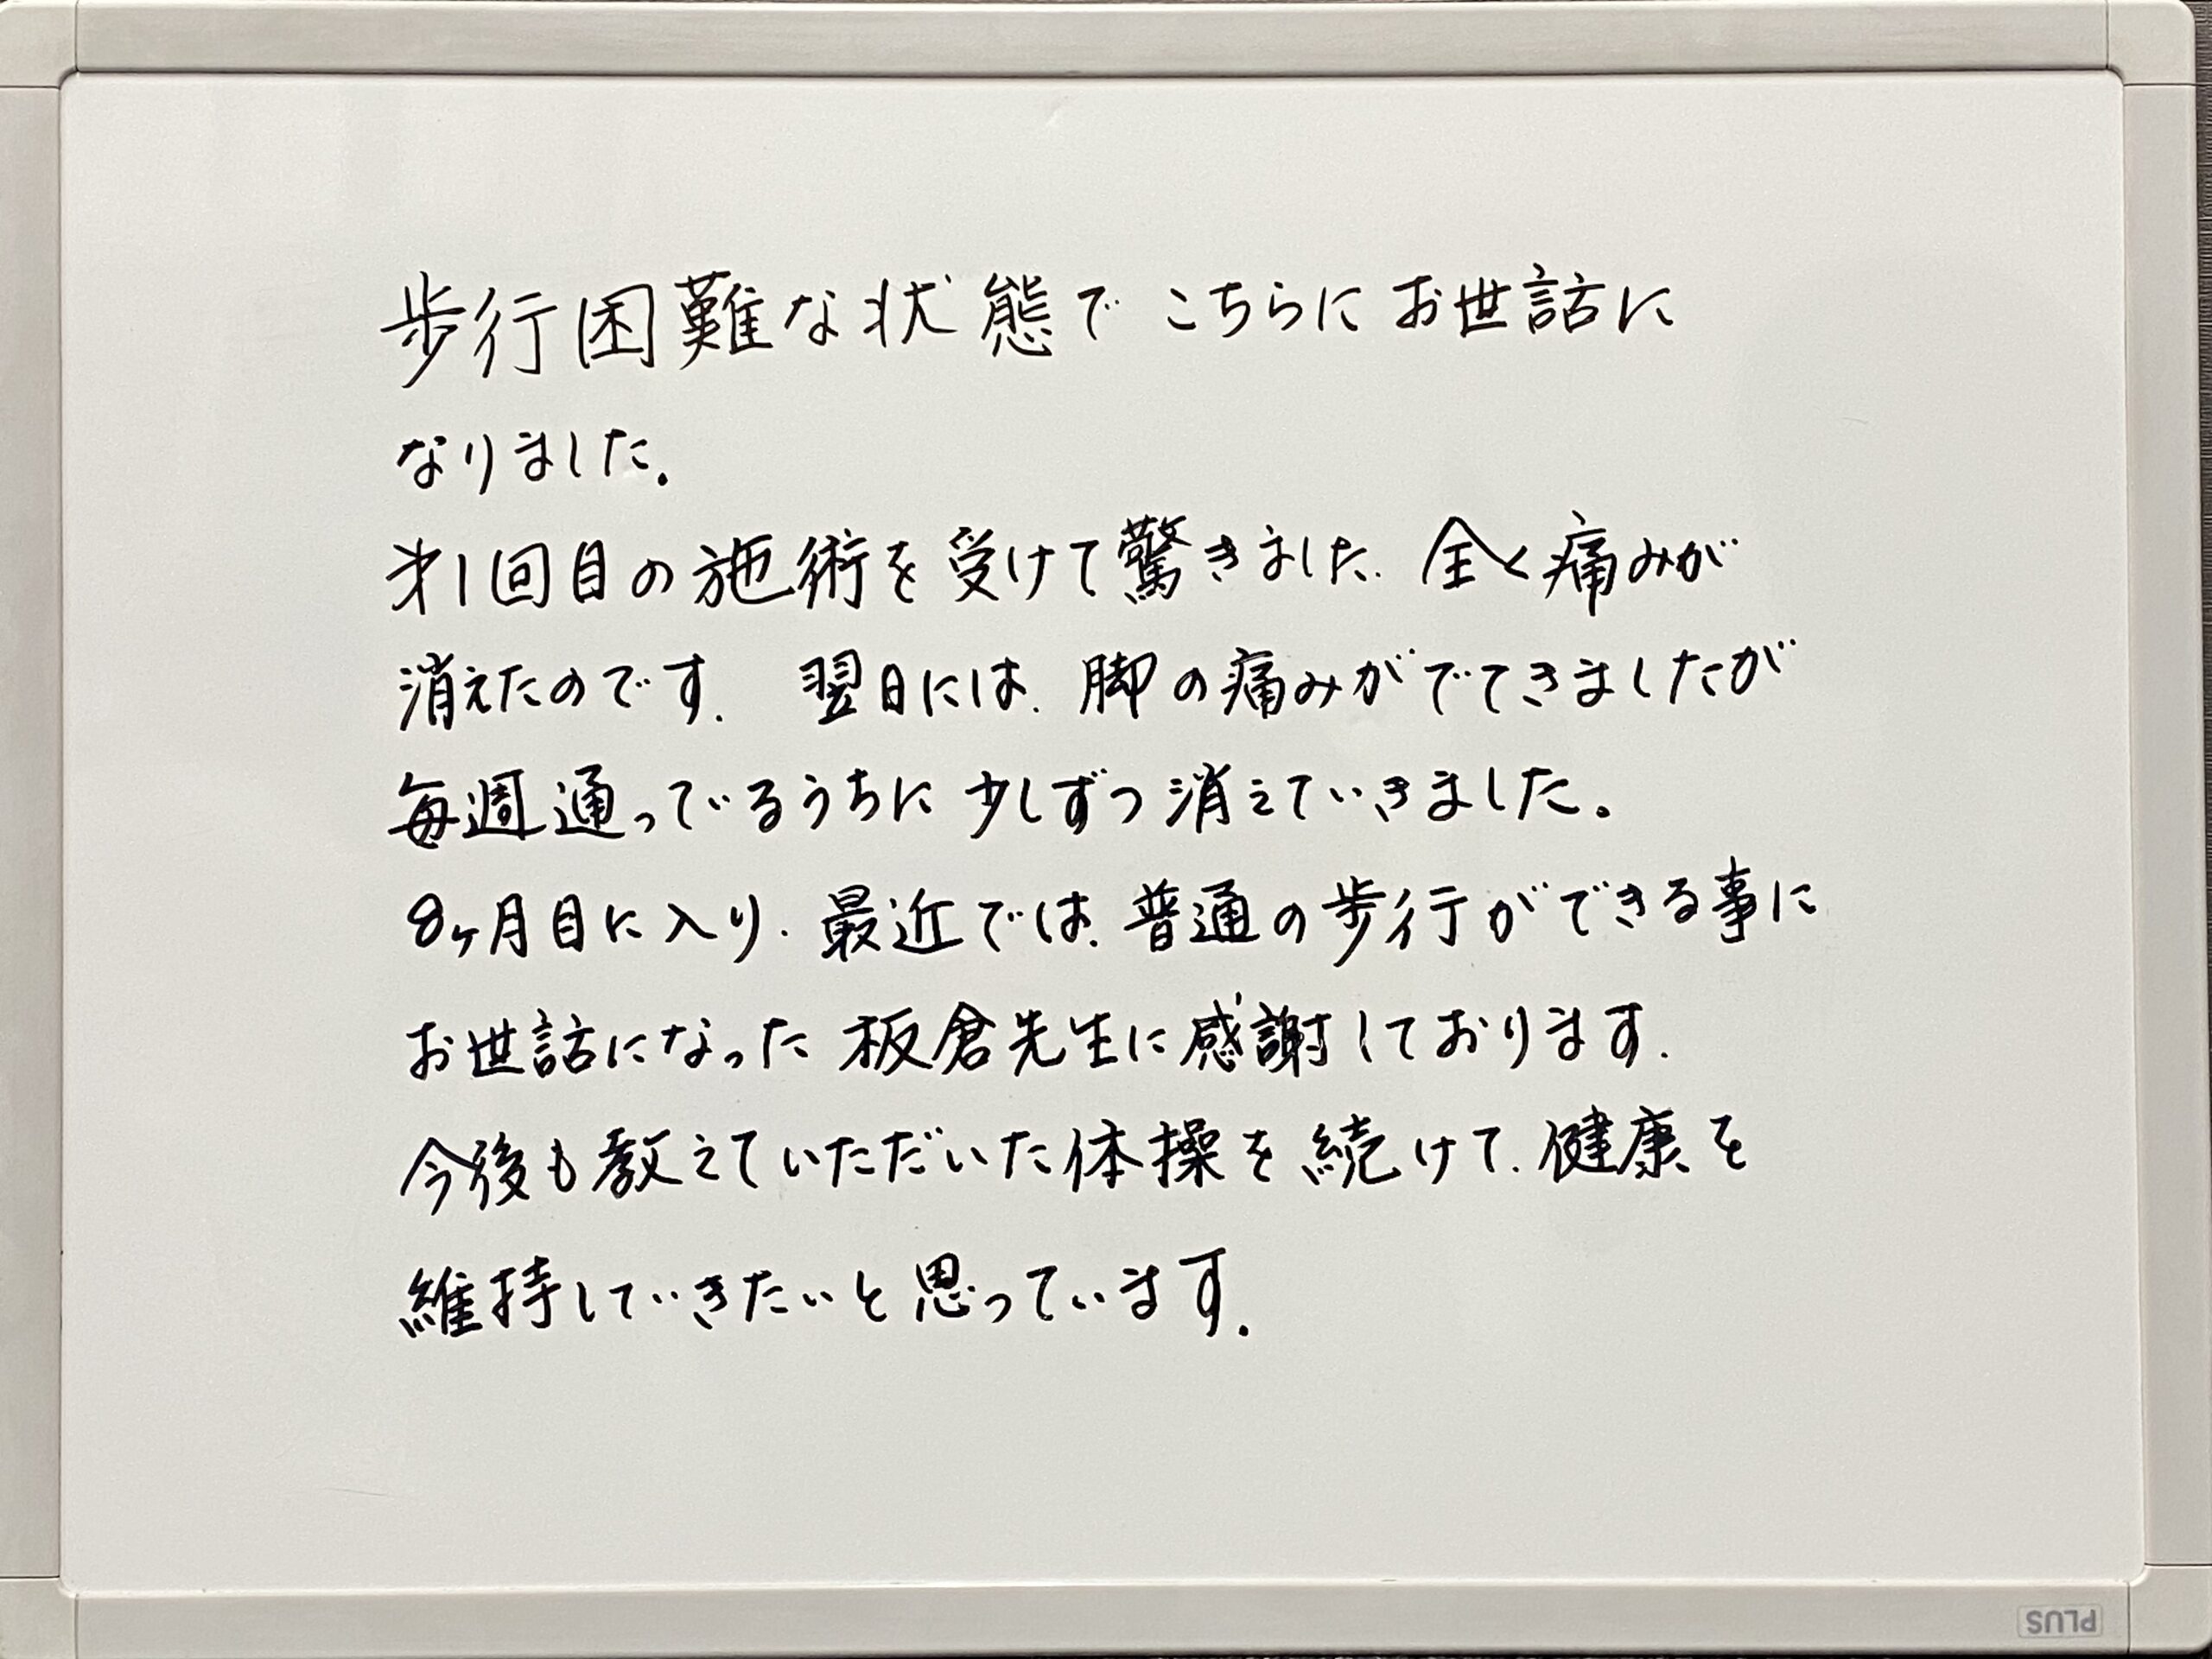 歩行困難な状態でこちらにお世話に
なりました.
才1回目の施術を受けて驚きました. 全く痛みが
消えたのです. 翌日には. 脚の痛みがでてきましたが
毎週通っているうちに少しずつ消えていきました。
8ヶ月目に入り. 最近では. 普通の歩行ができる事に
お世話になった板倉先生に感謝しております.
今後も教えていただいた体操を続けて. 健康を
維持していきたいと思っています.
PLUS